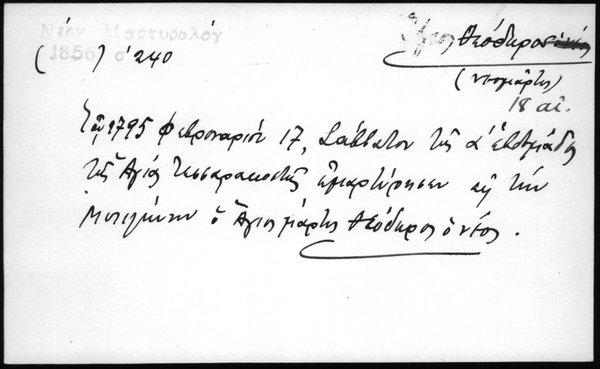 Νέον Μαρτυρολόγ
1856 σ
( ) σ 240
Ἅγιος Θεόδωρος
(νεομάρτυς)
18 αἰ.
Τῷ 1795 Φεβρουαρίου 17, Σάββατον τῆς α' ἑβδομάδος
τῆς Ἁγίας Τεσσαρακοστῆς ἐμαρτύρησεν εἰς τὴν
Μυτιλήνην ὁ Ἅγιος μάρτυς Θεόδωρος ὁ νέος.